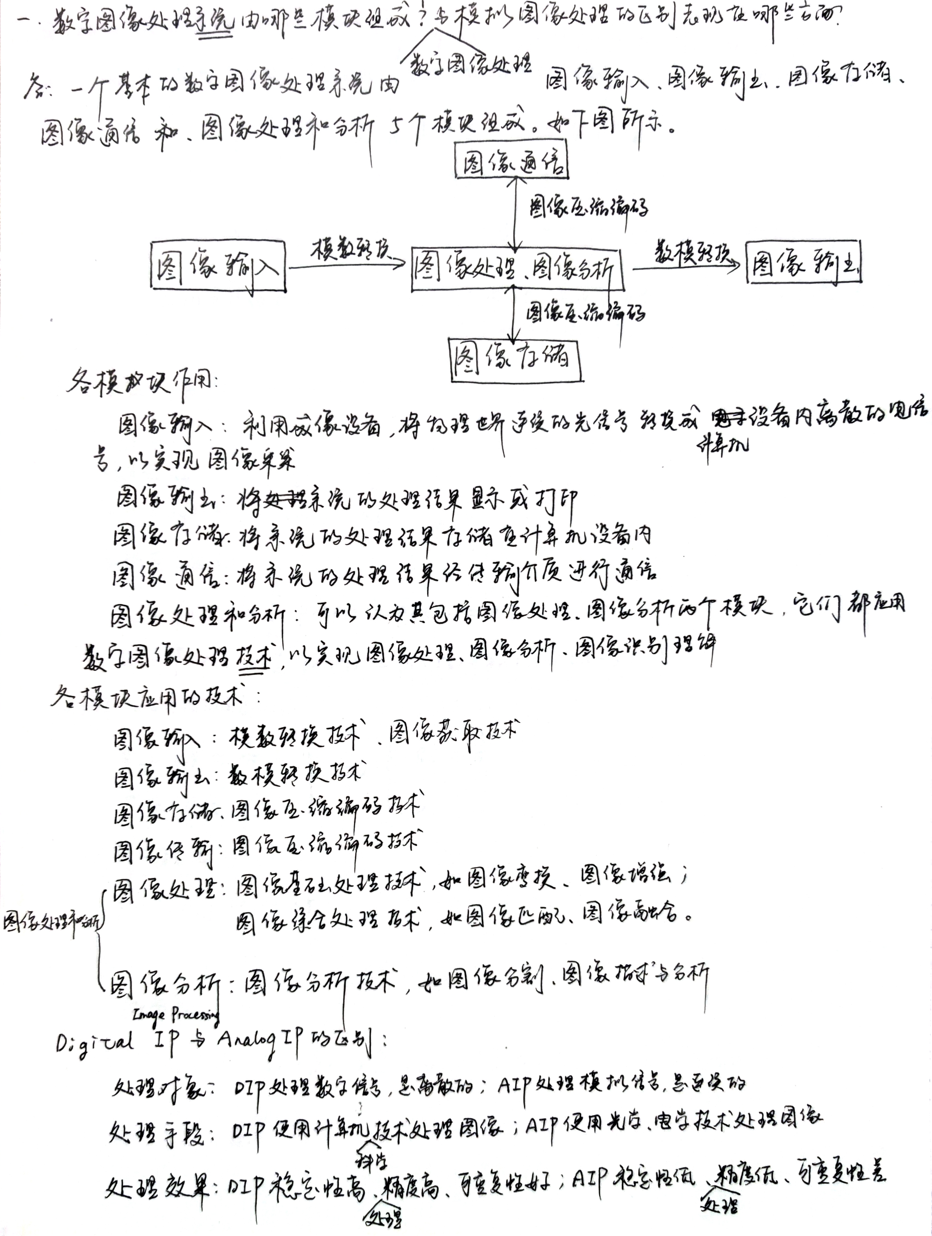 一、数字图像处理系统由哪些模块组成?与模拟图像处理的区别表现在哪些方面?
数字图像处理
答:一个基本的数字图像处理系统由图像输入、图像输出、图像存储、
图像通信和、图像处理和分析5个模块组成。如下图所示。
图像通信
图像压缩编码
图像输入 模数转换 图像处理、图像分析 数模转换 图像输出
图像压缩编码
图像存储
各模块作用:
图像输入:利用成像设备,将物理世界连续的光信号转换成计算机设备内离散的电信
号,以实现图像采集
图像输出:将系统的处理结果显示或打印
图像存储:将系统的处理结果存储在计算机设备内
图像通信:将系统的处理结果经传输介质进行通信
图像处理和分析:可以认为其包括图像处理、图像分析两个模块,它们都应用
数字图像处理技术,以实现图像处理、图像分析、图像识别理解
各模块应用的技术:
图像输入:模数转换技术、图像获取技术
图像输出:数模转换技术
图像存储:图像压缩编码技术
图像传输:图像压缩编码技术
图像处理和分析
图像处理:图像基础处理技术,如图像变换、图像增强;
图像综合处理技术,如图像匹配、图像融合。
图像分析:图像分析技术,如图像分割、图像描述与分析
Image Processing
Digital IP与Analog IP的区别:
处理对象:DIP处理数字信号,是离散的;AIP处理模拟信号,是连续的
处理手段:DIP使用计算机科学技术处理图像;AIP使用光学、电学技术处理图像
处理效果:DIP稳定性高、处理精度高、可重复性好;AIP稳定性低、处理精度低、可重复性差